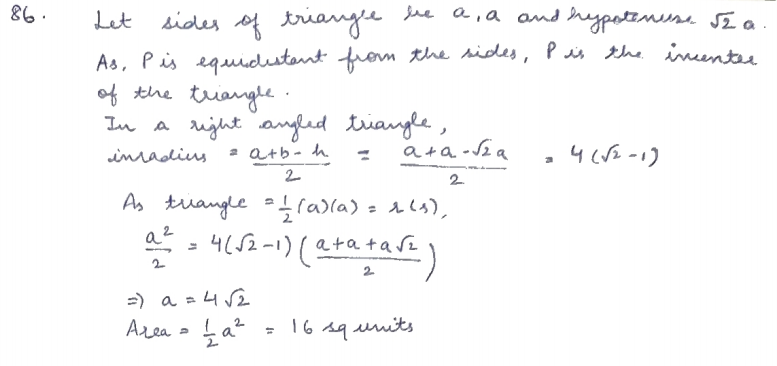 86. Let sides of triangle be a, a and hypotenuse √2 a.
As, P is equidistant from the sides, P is the incenter
of the triangle.
In a right angled triangle,
inradius = (a+b-h)/2 = (a+a-√2a)/2 = 4(√2-1)
As triangle = 1/2 (a)(a) = r(s),
a²/2 = 4(√2-1) ((a+a+a√2)/2)
=) a = 4√2
Area = 1/2 a² = 16 sq units